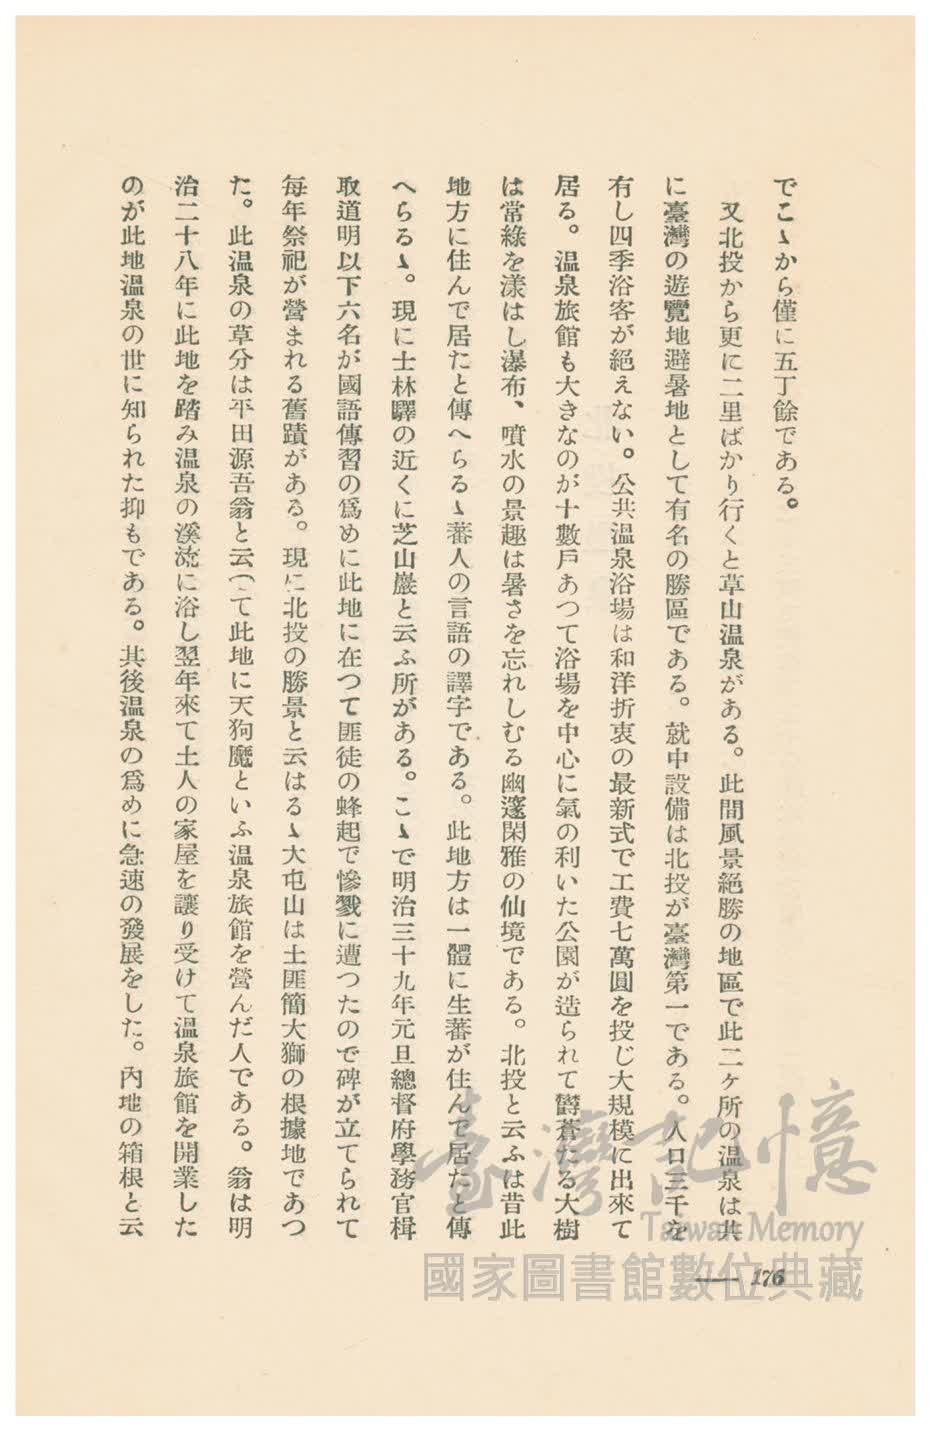 でこゝから僅に五丁餘である。
又北投から更に二里ばかり行くと草山温泉がある。此間風景絕勝の地區で此二ケ所の温泉は共
に臺灣の遊覽地避暑地として有名の勝區である。就中設備は北投が臺灣第一である。人口三千を
有し四季浴客が絕えない。公共温泉浴場は和洋折衷の最新式で工費七萬圓を投じ大規模に出來て
居る。温泉旅館も大きなのが十數戶あつて浴場を中心に氣の利いた公園が造られて欝蒼たる大樹
は常綠を漾はし瀑布、噴水の景趣は暑さを忘れしむる幽邃閑雅の仙境である。北投と云ふは昔此
地方に住んで居たと傳へらるゝ蕃人の言語の譯字である。此地方は一體に生蕃が住んで居たと傳
へらるゝ。現に士林驛の近くに芝山巖と云ふ所がある。こゝで明治三十九年元旦總督府學務官楫
取道明以下六名が國語傳習の爲めに此地に在つて匪徒の蜂起で慘戮に遭つたので碑が立てられて
每年祭祀が營まれる舊蹟がある。現に北投の勝景と云はるゝ大屯山は土匪簡大獅の根據地であつ
た。此温泉の草分は平田源吾翁と云つて此地に天狗魔といふ温泉旅館を營んだ人である。翁は明
治二十八年に此地を踏み温泉の溪流に浴し翌年來て土人の家屋を讓り受けて温泉旅館を開業した
のが此地温泉の世に知られた抑もである。其後温泉の爲めに急速の發展をした。內地の箱根と云
176
臺灣記憶
Taiwan Memory
國家圖書館數位典藏